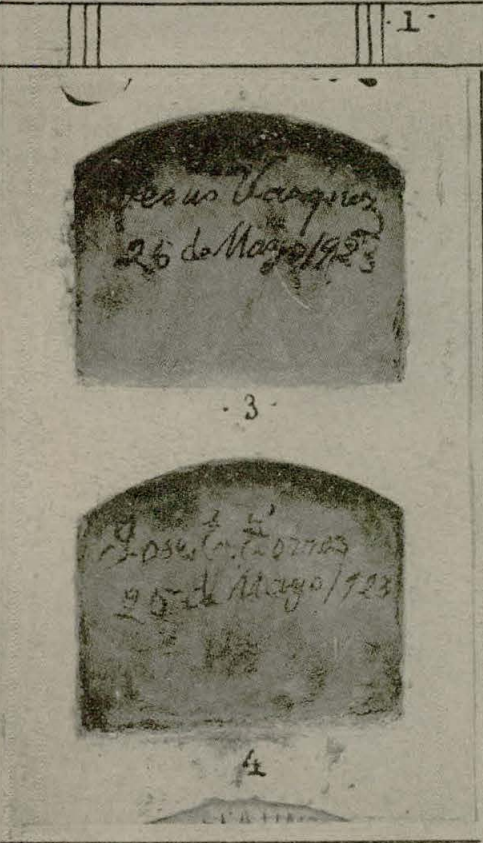 ·1·
Jesus Vasquez
26 de Mayo/923
·3·
Jose G. Torres
25 de Mayo/923
4